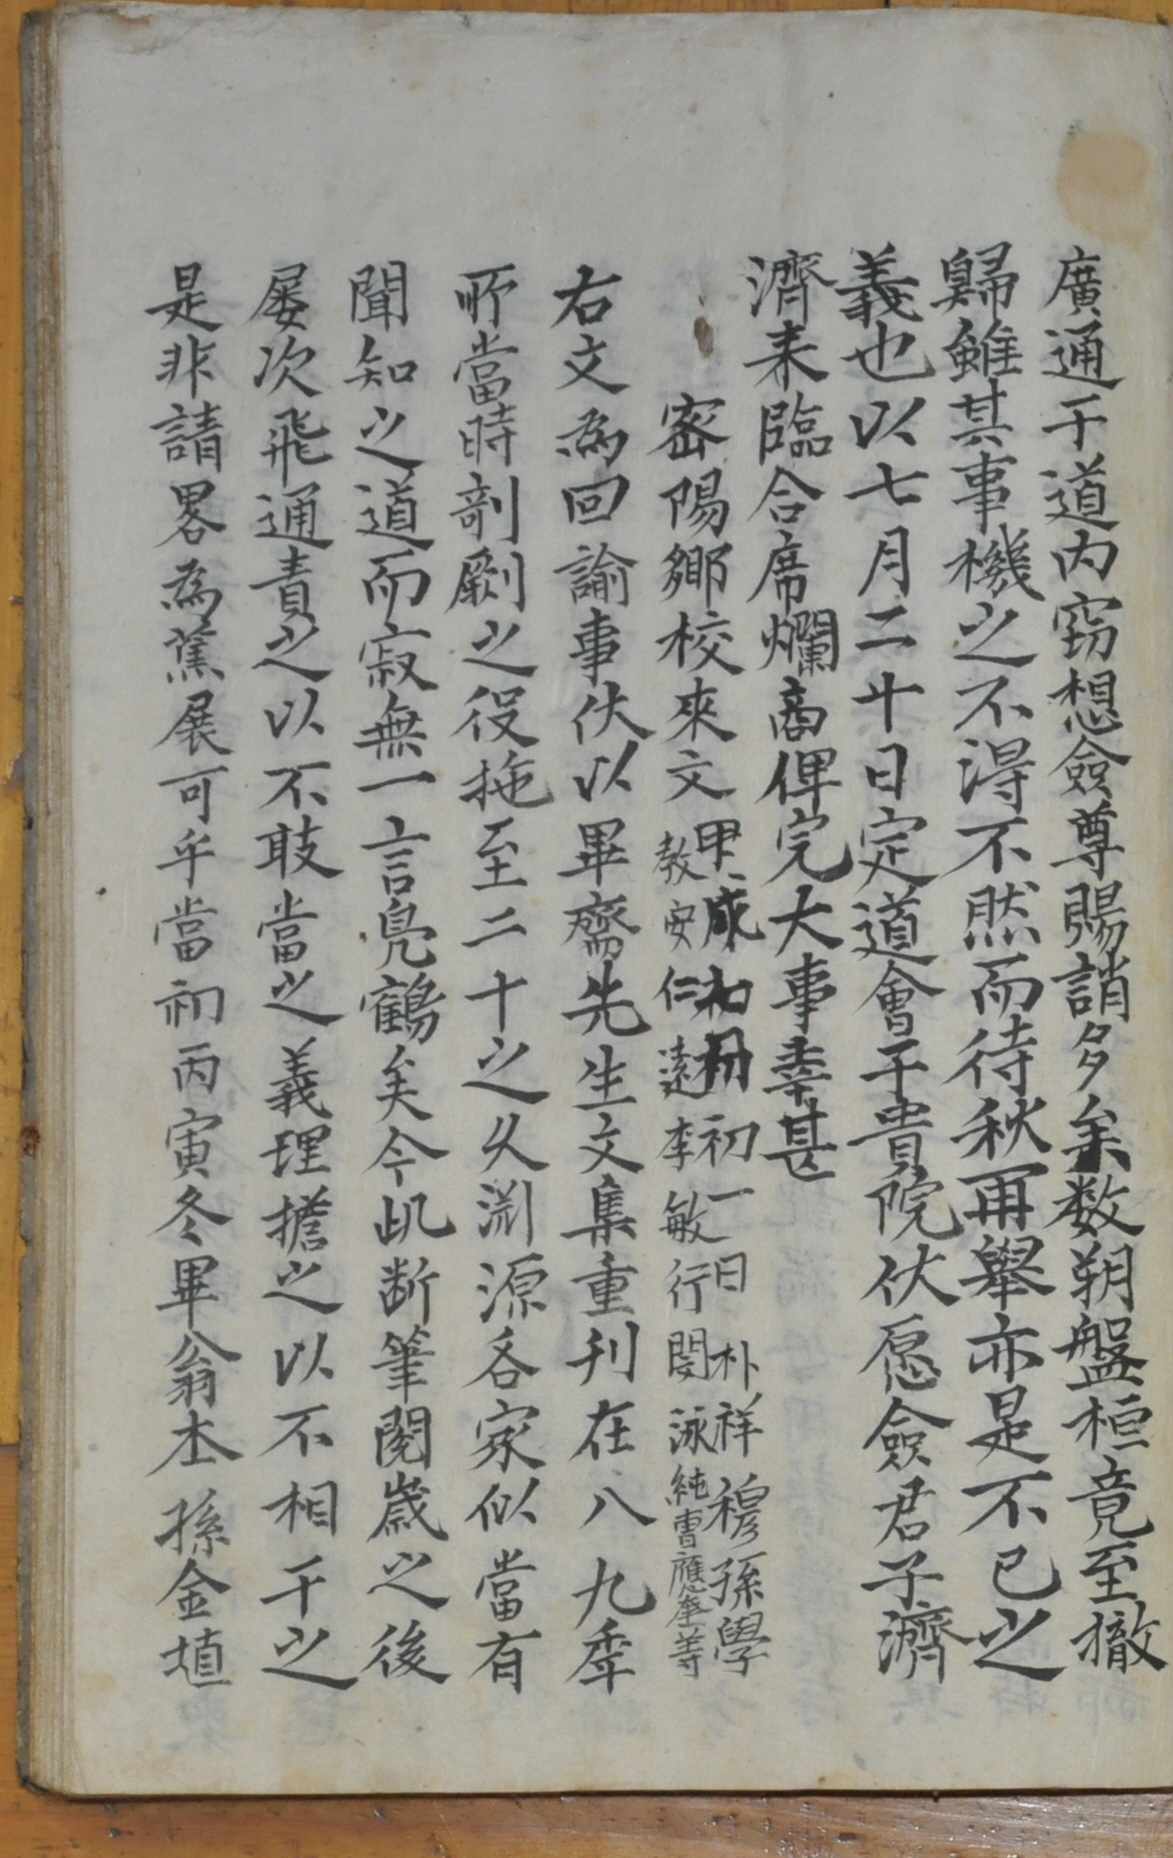 廣通于道內窃想僉尊賜誚多矣数朔盤桓竟至撤
歸雖其事機之不得不然而待秋再舉亦是不已之
義也以七月二十日定道會于貴院伏愿僉君子濟
濟来臨合席爛商俾完大事幸甚
密陽鄉校來文
甲戌初一日朴祥穆孫學
教安仁遠李敏行閔泳純曺應奎等
右文為回諭事伏以畢齋先生文集重刊在八九年
所當時剞劂之役拖至二十之久渊源各家似當有
聞知之道而寂無一言鳧鶴矣今此断筆閱歲之後
屡次飛通責之以不敢當之義理擔之以不相干之
是非請畧為蕉展可乎當初丙寅冬畢翁本孫金埴